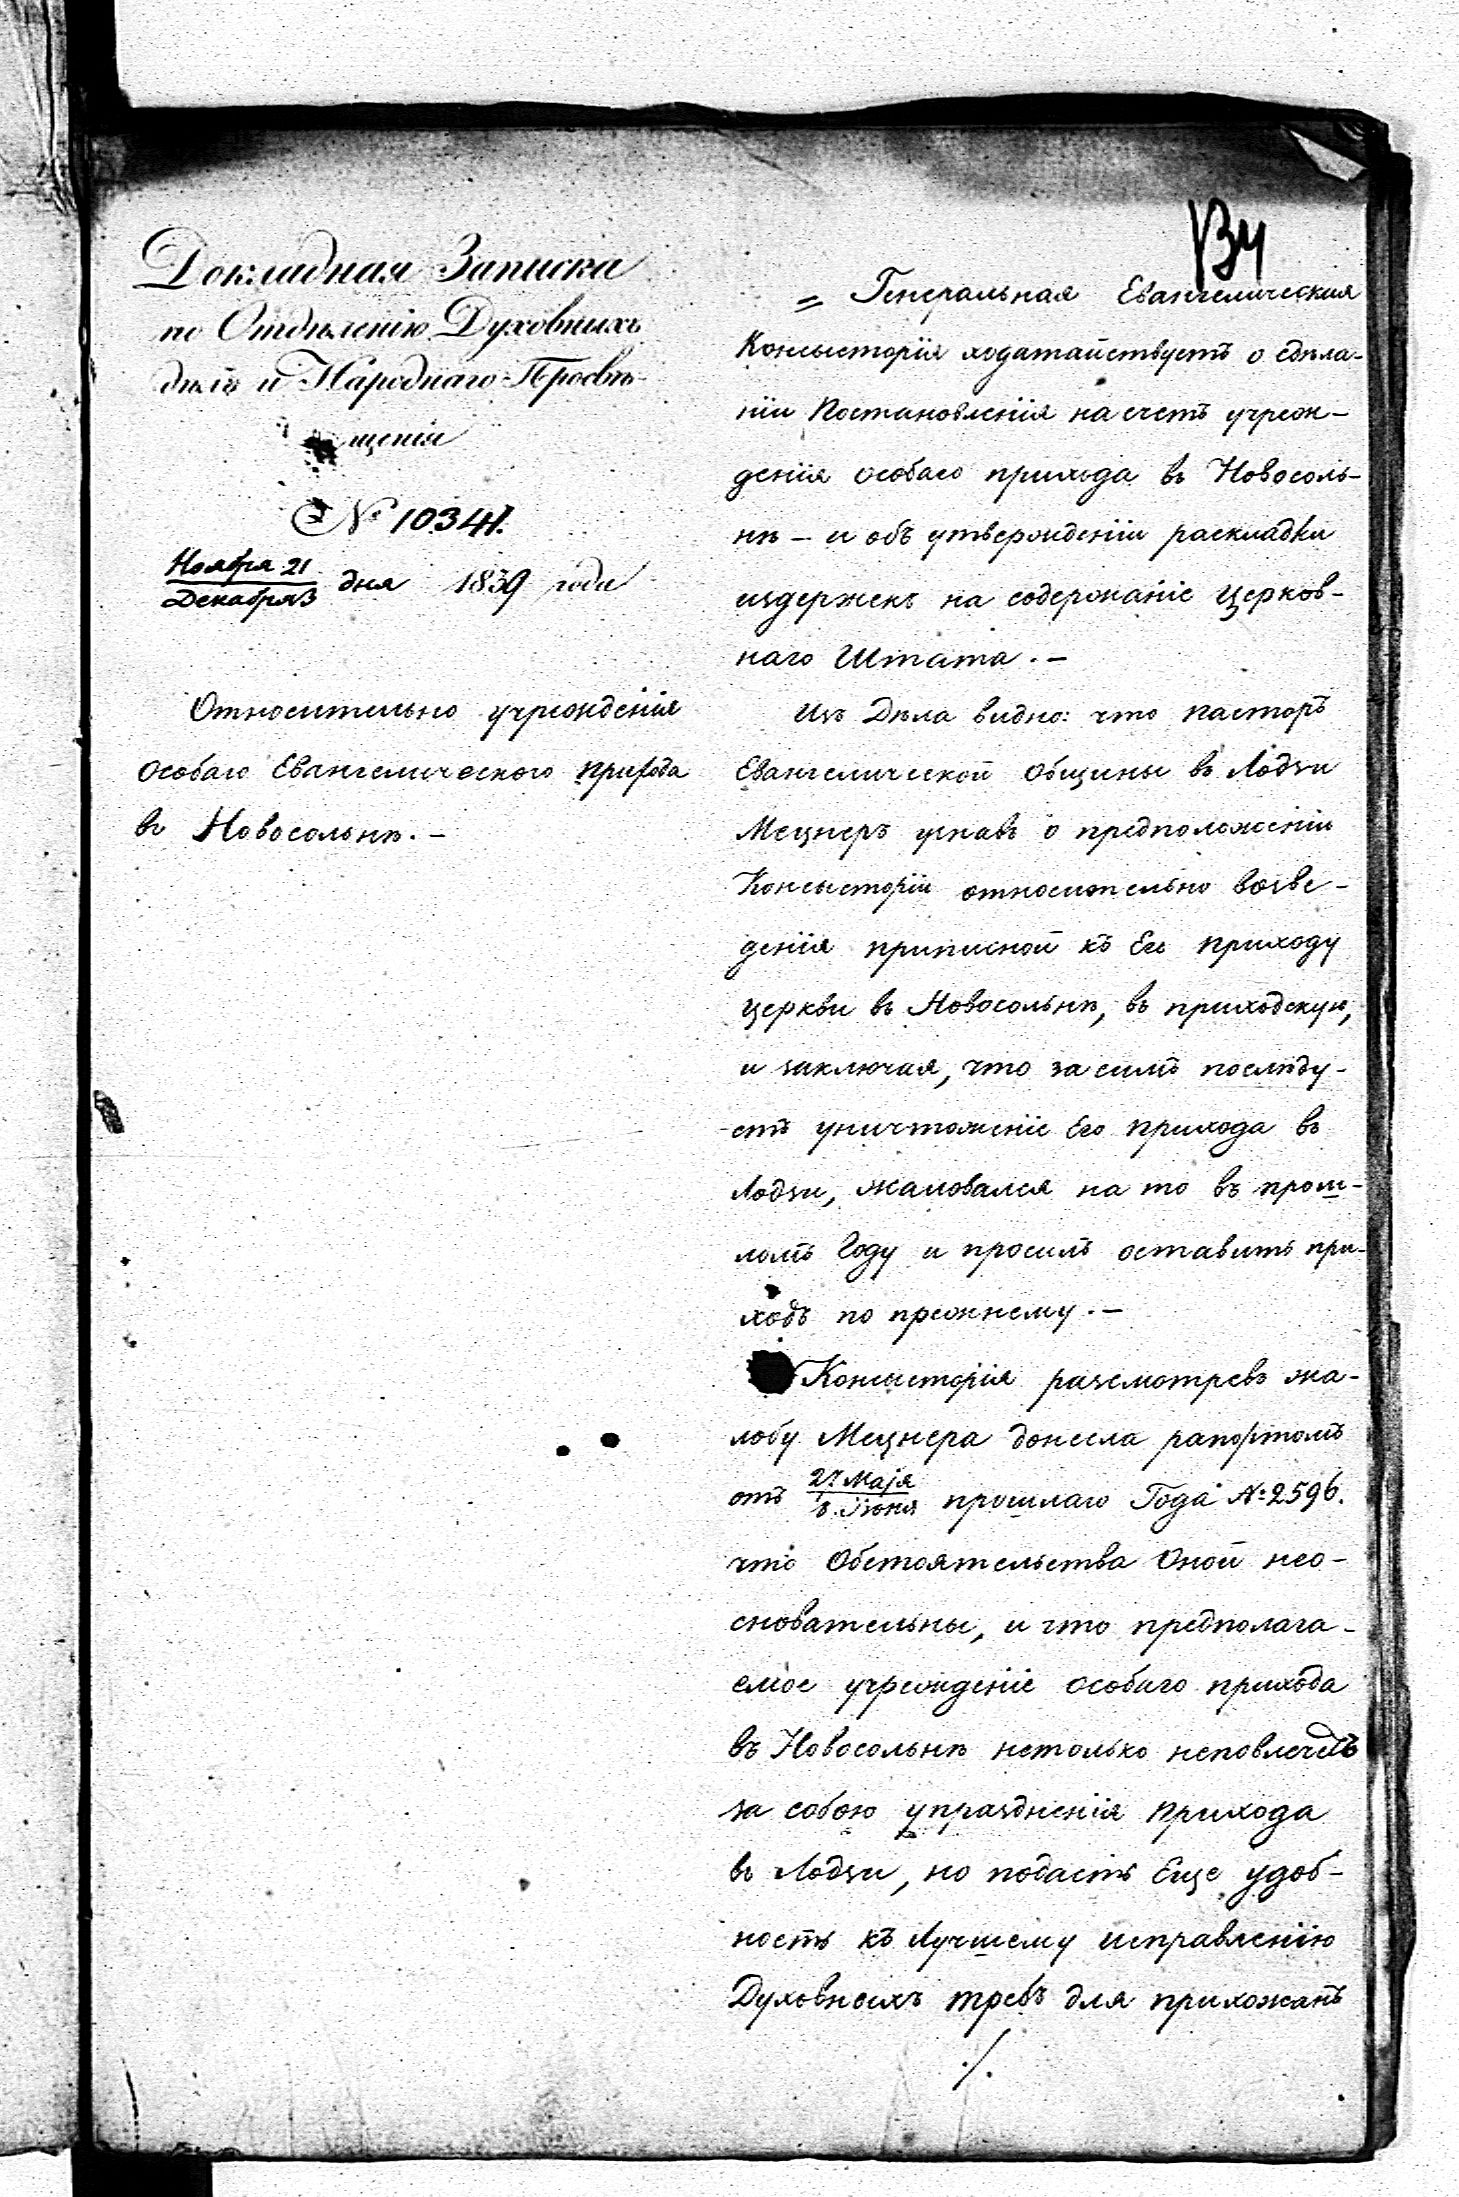 Докладная Записка
по Отдѣленію Духовныхъ
дѣлъ и Народнаго Просвѣ-
щенія
№ 10341.
Ноября 21
Декабря 3 дня 1839 года
Относительно учрежденія
особаго Евангелическаго прихода
въ Новосольнѣ. –
134
= Генеральная Евангелическая
Консисторія ходатайствуетъ о сдѣла-
ніи Постановленія на счетъ учреж-
денія особаго прихода въ Новосоль-
нѣ – и объ утвержденіи раскладки
издержекъ на содержаніе церков-
наго Штата. –
Изъ Дѣла видно: что пасторъ
Евангелической общины въ Лодзи
Мецнеръ узнавъ о предположеніи
Консисторіи относительно возве-
денія приписной къ Его приходу
церкви въ Новосольнѣ, въ приходскую,
и заключая, что за симъ послѣду-
етъ уничтоженіе Его прихода въ
Лодзи, жаловался на то въ прош-
ломъ Году и просилъ оставить при-
ходъ по прежнему. –
Консисторія разсмотревъ жа-
лобу Мецнера донесла рапортомъ
отъ 27 Маія
8. Іюня прошлаго Года №: 2596.
что Обстоятельства Оной нео-
сновательны, и что предполага-
емое учрежденіе особаго прихода
въ Новосольнѣ нетолько неповлечетъ
за собою упраздненія прихода
въ Лодзи, но подастъ Еще удоб-
ность къ Лучшему исправленію
Духовныхъ требъ для прихожанъ
./.